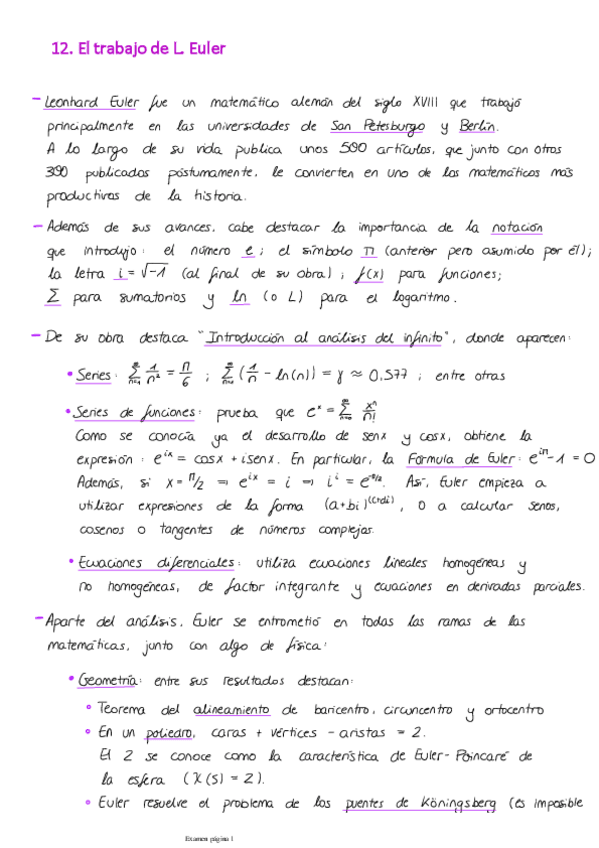 12. El trabajo de L. Euler
- Leonhard Euler fue un matemático alemán del siglo XVIII que trabajó
principalmente en las universidades de San Petesburgo y Berlín.
A lo largo de su vida publica unos 500 artículos, que junto con otros
300 publicados póstumamente, le convierten en uno de los matemáticos más
productivos de la historia.
- Además de sus avances, cabe destacar la importancia de la notación
que introdujo: el número e; el símbolo π (anterior pero asumido por él);
la letra i = √-1 (al final de su obra); f(x) para funciones;
Σ para sumatorios y ln (o L) para el logaritmo.
- De su obra destaca "Introducción al análisis del infinito", donde aparecen:
• Series: Σ 1/n² = π/6 ; Σ (1/n - ln(n)) = γ ≈ 0,577 ; entre otras
• Series de funciones: prueba que eˣ = Σ xⁿ/n!
Como se conocía ya el desarrollo de senx y cosx, obtiene la
expresión: e^ix = cosx + isenx. En particular, la Fórmula de Euler: e^iπ - 1 = 0
Además, si x = π/2 ⇒ e^ix = i ⇒ i^i = e^-π/2. Así, Euler empieza a
utilizar expresiones de la forma (a+bi)^(c+di), o a calcular senos,
cosenos o tangentes de números complejos.
• Ecuaciones diferenciales: utiliza ecuaciones lineales homogéneas y
no homogéneas, de factor integrante y ecuaciones en derivadas parciales.
- Aparte del análisis, Euler se entrometió en todas las ramas de las
matemáticas, junto con algo de física:
• Geometría: entre sus resultados destacan:
∘ Teorema del alineamiento de baricentro, circuncentro y ortocentro
∘ En un poliedro, caras + vértices - aristas = 2.
El 2 se conoce como la característica de Euler-Poincaré de
la esfera (X(S) = 2).
∘ Euler resuelve el problema de los puentes de Köningsberg (es imposible
Examen página 1